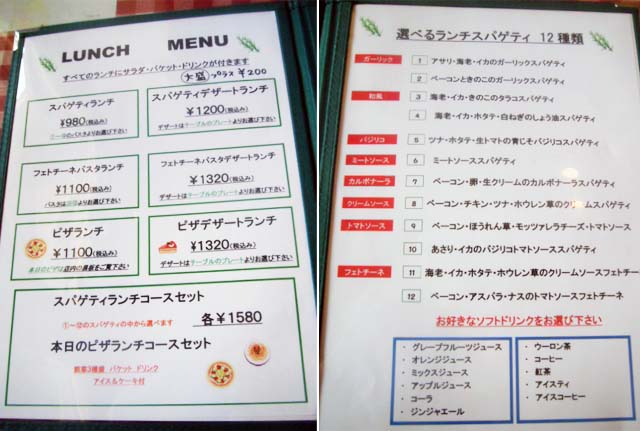 LUNCH MENU
すべてのランチにサラダ・バケット・ドリンクが付きます
大盛 プラス ¥200
スパゲティランチ
¥980(税込み)
スパゲティデザートランチ
¥1200(税込み)
デザートはテーブルのプレートよりお選び下さい
フェトチーネパスタランチ
¥1100(税込み)
フェトチーネパスタデザートランチ
¥1320(税込み)
デザートはテーブルのプレートよりお選び下さい
ピザランチ
¥1100(税込み)
本日のピザは店内の黒板をご覧下さい
ピザデザートランチ
¥1320(税込み)
デザートはテーブルのプレートよりお選び下さい
スパゲティランチコースセット
①~⑫のスパゲティの中から選べます
各¥1580
本日のピザランチコースセット
前菜3種盛 バケット ドリンク
アイス&ケーキ付
選べるランチスパゲティ 12種類
ガーリック 1 アサリ・海老・イカのガーリックスパゲティ
2 ベーコンときのこのガーリックスパゲティ
和風 3 海老・イカ・きのこのタラコスパゲティ
4 海老・イカ・ホタテ・白ねぎのしょう油スパゲティ
バジリコ 5 ツナ・ホタテ・生トマトの青じそバジリコスパゲティ
ミートソース 6 ミートソーススパゲティ
カルボナーラ 7 ベーコン・卵・生クリームのカルボナーラスパゲティ
クリームソース 8 ベーコン・チキン・ツナ・ホウレン草のクリームスパゲティ
トマトソース 9 ベーコン・ほうれん草・モッツァレラチーズ・トマトソース
10 あさり・イカのバジリコトマトソーススパゲティ
フェットチーネ 11 海老・イカ・ホタテ・ホウレン草のクリームソースフェットチー
12 ベーコン・アスパラ・ナスのトマトソースフェトチーネ
お好きなソフトドリンクをお選び下さい
・ グレープフルーツジュース
・ オレンジジュース
・ ミックスジュース
・ アップルジュース
・ コーラ
・ ジンジャエール
・ ウーロン茶
・ コーヒー
・ 紅茶
・ アイスティ
・ アイスコーヒー